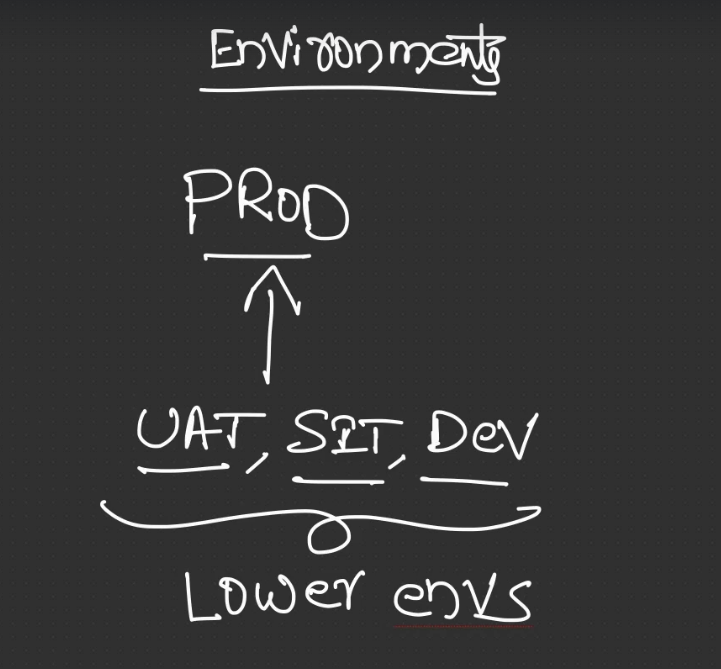 Environments
PROD
UAT, SIT, Dev
Lower envs